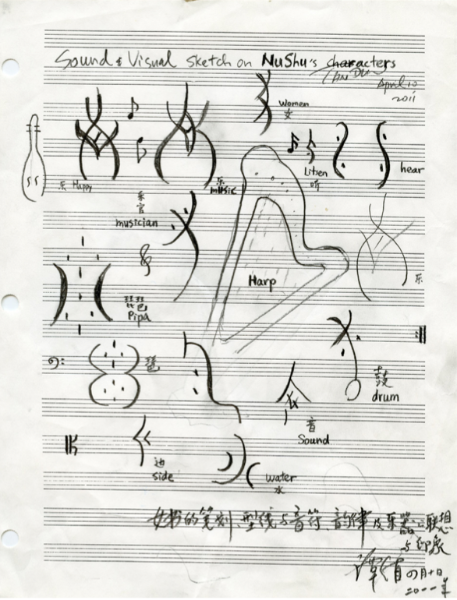 Sound & Visual sketch on NuShu's characters
Tan Dun
April 10
2011
Women
女
乐 Happy
乐
music
Listen
听
hear
乐
官
musician
Harp
乐
琵琶
Pipa
琶
鼓
drum
音
Sound
边
side
water
水
女书的笔划 型线与音符 韵律及乐器的联想
与印象
谭盾 四月十日
二〇一一年